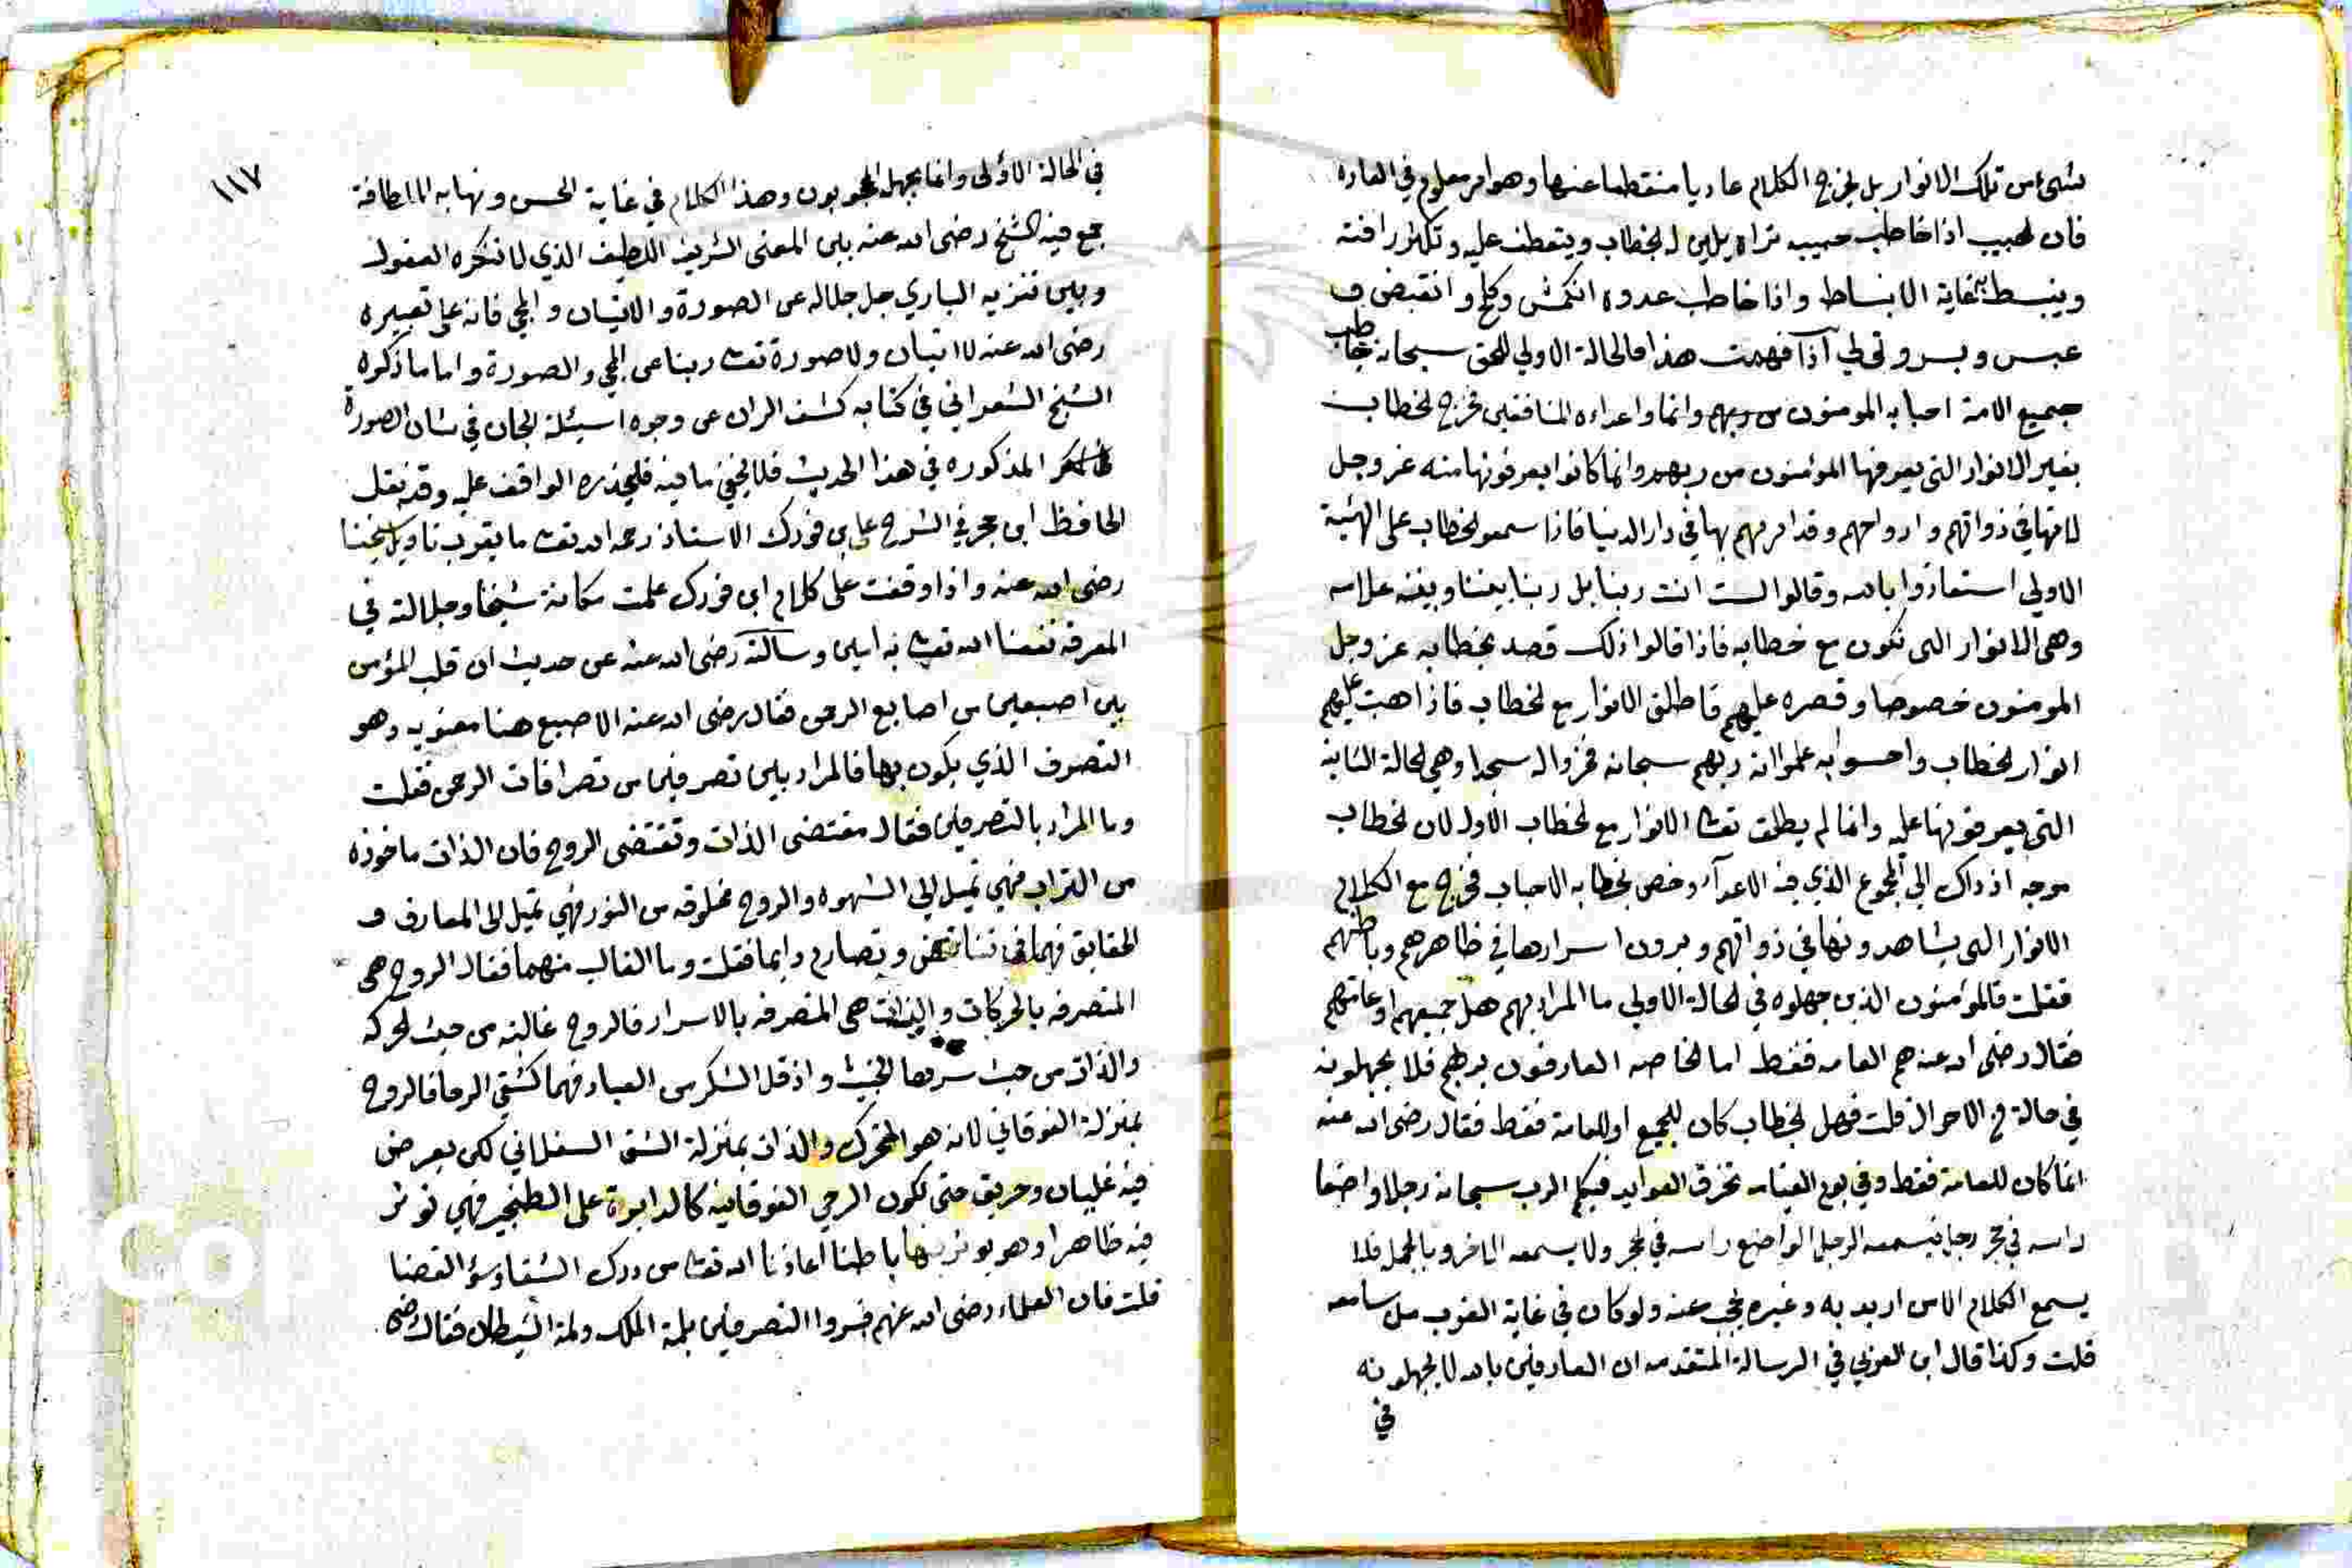 شيء من تلك الانوار بل يخرج الكلام عاريا منقطعا عنها وهو امر معلوم في العاده
فان الحبيب اذا خاطب حبيبه تراه يلين له الخطاب ويتعطف عليه وتكثر رافته
وينبسط بغاية الانبساط واذا خاطب عدوه انكمش وكلح وانقبض و
عبس وبسر وتولي اذا فهمت هذا فالحالة الاولي للحق سبحانه خاطب
جميع الامة احبابه المومنون من ربهم وانما واعداءه المنافقين فخرج الخطاب
بغير الانوار التي يعرفها المؤمنون من ربهم وانما كانوا يعرفونها منه عز وجل
لانها في ذواتهم وارواحهم وقد امرهم بها في دار الدنيا فاذا سمعوا الخطاب على الهيئة
الاولي استعاذوا بالله وقالوا لست انت ربنا بل ربنا بيننا وبينه علامه
وهي الانوار التي تكون مع خطابه فاذا قالوا ذلك قصد بخطابه عز وجل
المومنون خصوصا وقصره عليهم فاطلق الانوار مع الخطاب فاذا هبت عليهم
انوار الخطاب واحسوا به علموا انه ربهم سبحانه فخروا له سجدا وهي الحالة الثانية
التي يعرفونها عليه وانما لم يطلق تعالى الانوار مع الخطاب الاول لان الخطاب
موجه اذ ذاك الي المجموع الذي فيه الاعدآء وخص بخطابه الاحباب فخرج مع الكلام
الانوار التي يشاهدونها في ذواتهم ويرون اسرارها في ظاهرهم وباطنهم
فقلت فالمؤمنون الذين جهلوه في الحالة الاولي ما المراد بهم هل جميعهم او عامتهم
فقال رضي الله عنه هم العامه فقط اما الخاصه العارفون بربهم فلا يجهلونه
في حالة من الاحوال قلت فهل الخطاب كان للجميع او للعامة فقط فقال رضي الله عنه
انما كان للعامة فقط وفي يوم القيامه تخرق العوايد فيكلم الرب سبحانه رجلا واضعا
راسه في حجر رجل فيسمعه الرجل الواضع راسه في الحجر ولا يسمعه الاخر وبالجمله فلا
يسمع الكلام الا من اريد به وغيره يحجب عنه ولو كان في غاية القرب من سامعه
قلت وكذا قال ابن العربي في الرسالة المتقدمه ان العارفين بالله لا يجهلونه
في
١١٧
في الحالة الاولى وانما يجهله المحجوبون وهذا الكلام في غاية الحسن ونهايه اللطافة
جمع فيه الشيخ رضي الله عنه بين المعنى الشريف اللطيف الذي لا تنكره العقول
وبين تنزيه الباري جل جلاله عن الصورة والاتيان والمجي فانه على تعبيره
رضي الله عنه لا اتيان ولا صورة تعالى ربنا عن المجي والصورة واما ما ذكره
الشيخ الشعراني في كتابه كشف الران عن وجوه اسيئلة الجان في شان الصورة
المذكوره في هذا الحديث فلا يخفى ما فيه فليحذره الواقف عليه وقد نقل
الحافظ ابن حجر في الشرح عن ابن فورك الاستاذ رحمه الله تعالى ما يقرب تاويل شيخنا
رضي الله عنه واذا وقفت على كلام ابن فورك علمت مكانة شيخنا وجلالته في
المعرفة نفعنا الله تعالى به امين وسالته رضي الله عنه عن حديث ان قلب المؤمن
بين اصبعين من اصابع الرحمن فقال رضي الله عنه الاصبع هنا معنويه وهو
التصرف الذي يكون بها فالمراد بين تصرفين من تصرافات الرحمن فقلت
وما المراد بالتصرفين فقال مقتضى الذات وتقتضى الروح فان الذات ماخوذه
من التراب فهي تميل الي الشهوه والروح مخلوقه من النور فهي تميل الى المعارف و
الحقايق فهما في تناقض وتصادم دايما فقلت وما الغالب منهما فقال الروح هي
المتصرفه بالحركات والذات هي المتصرفه بالاسرار فالروح غالبه من حيث الحركه
والذات من حيث سرها الخبيث واذ قل الشكر من العباد فهما كشقي الرحا فالروح
بمنزلة الفوقاني لانه هو المتحرك والذات بمنزلة الشق السفلاني لكن يعرض
فيه غليان وحريق حتى تكون الرحي الفوقانية كالدايرة على الطنجير فهي توثر
فيه ظاهرا وهو يوثر بها باطنا اعاذنا الله تعالى من درك الشقا وسؤ القضا
قلت فان العلماء رضي الله عنهم فسروا التصرفين بلمة الملك ولمة الشيطان فقال رضي